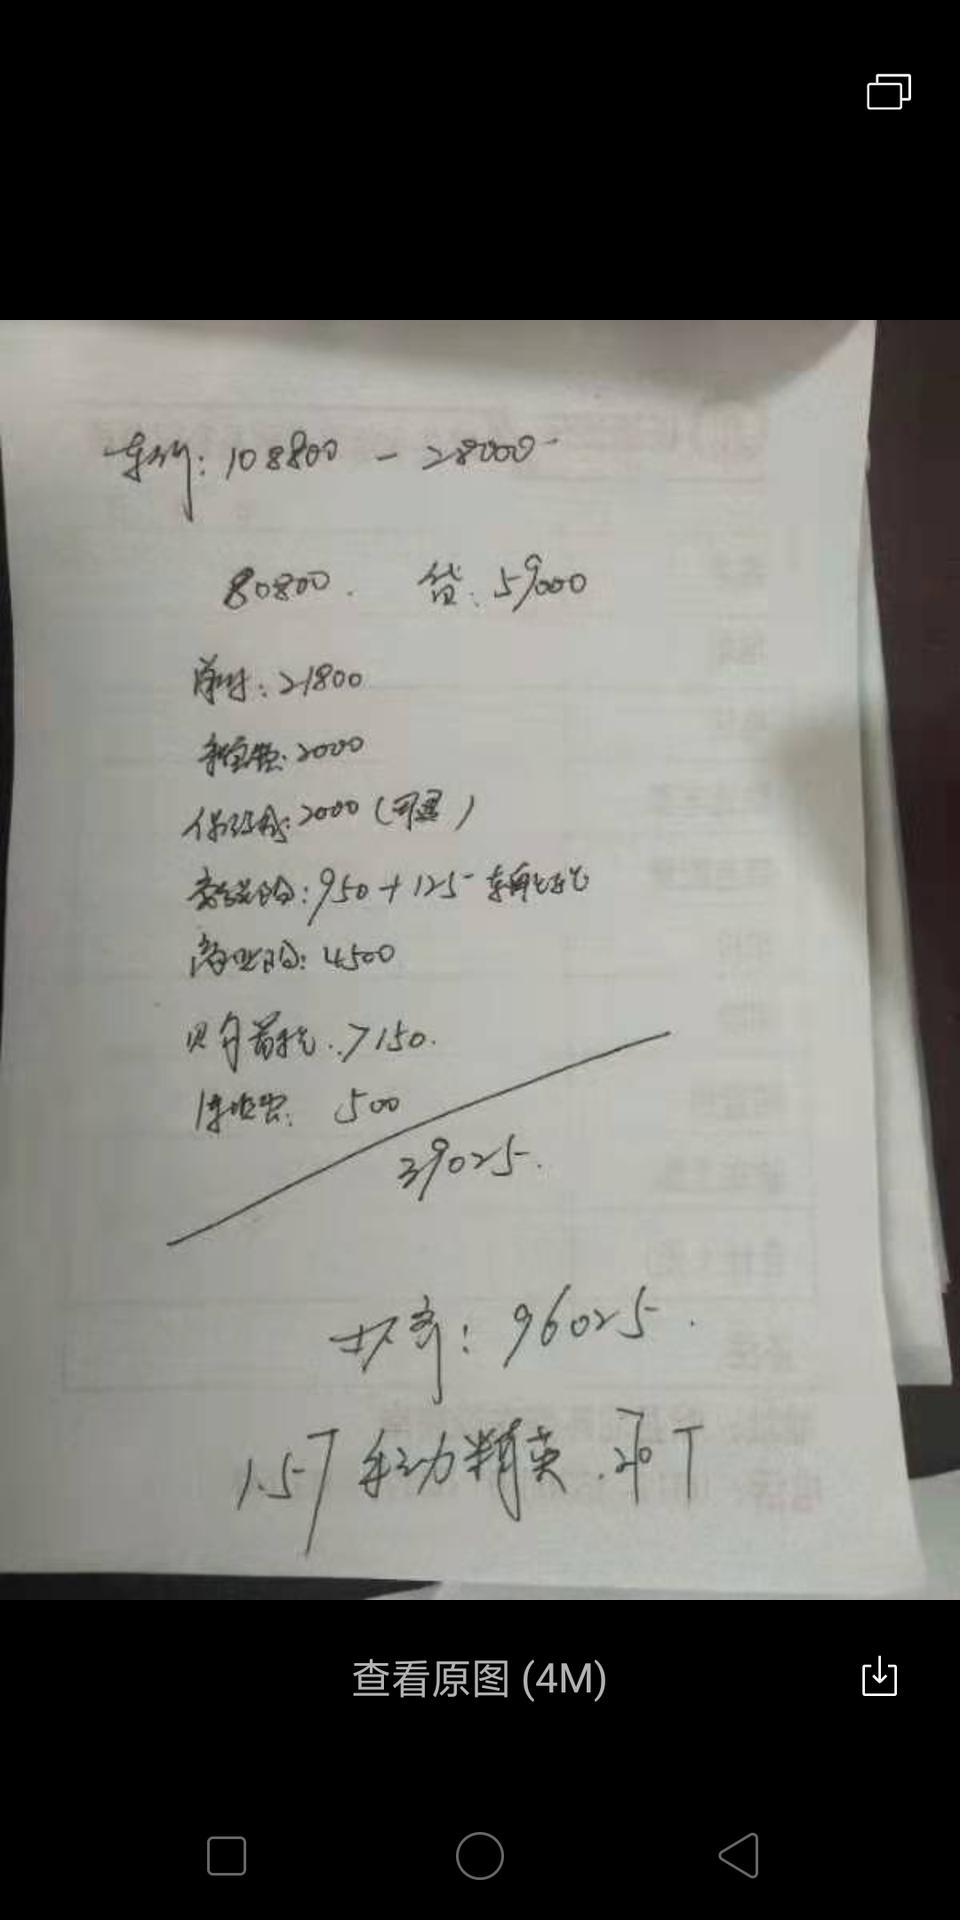 车价: 108800 - 28000
80800. 贷: 59000
首付: 21800
手续费: 2000
保证金: 2000 (可退)
交强险: 950 + 125 车船税
商业险: 4500
购置税: 7150.
500
39025.
共需: 96025.
1.5T 手动精英. 20T
查看原图 (4M)